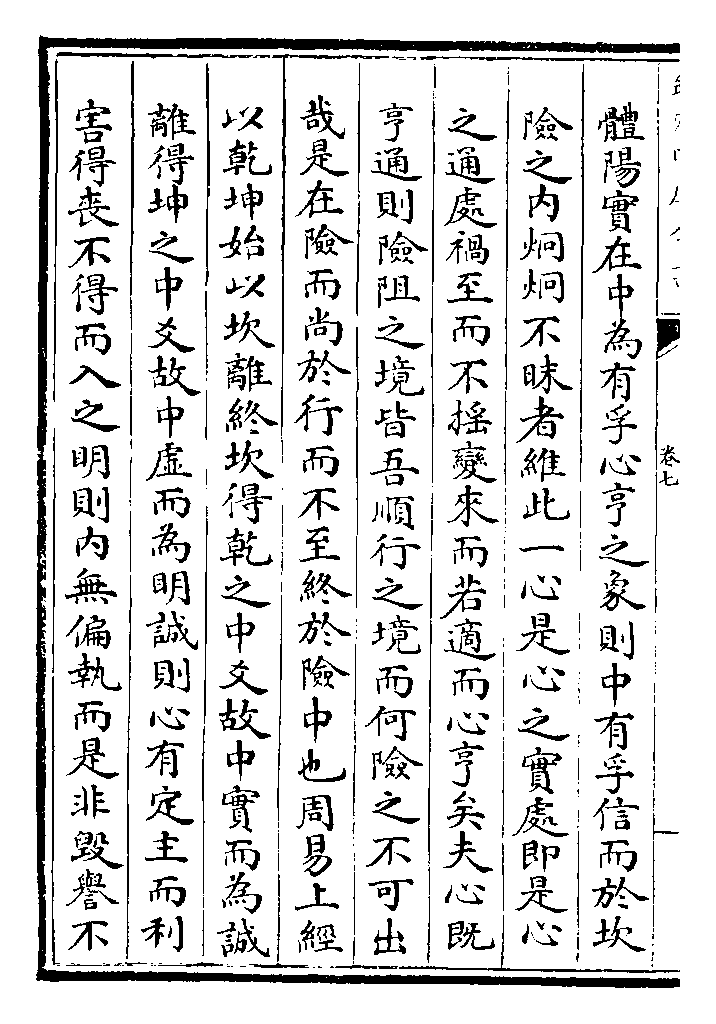 卷七
體陽實在中為有孚心亨之象則中有孚信而於坎
險之内炯炯不昧者維此一心是心之實處即是心
之通處禍至而不揺變來而若適而心亨矣夫心既
亨通則險阻之境皆吾順行之境而何險之不可出
哉是在險而尚於行而不至終於險中也周易上經
以乾坤始以坎離終坎得乾之中爻故中實而為誠
離得坤之中爻故中虛而為明誠則心有定主而利
害得喪不得而入之明則内無偏執而是非毀譽不